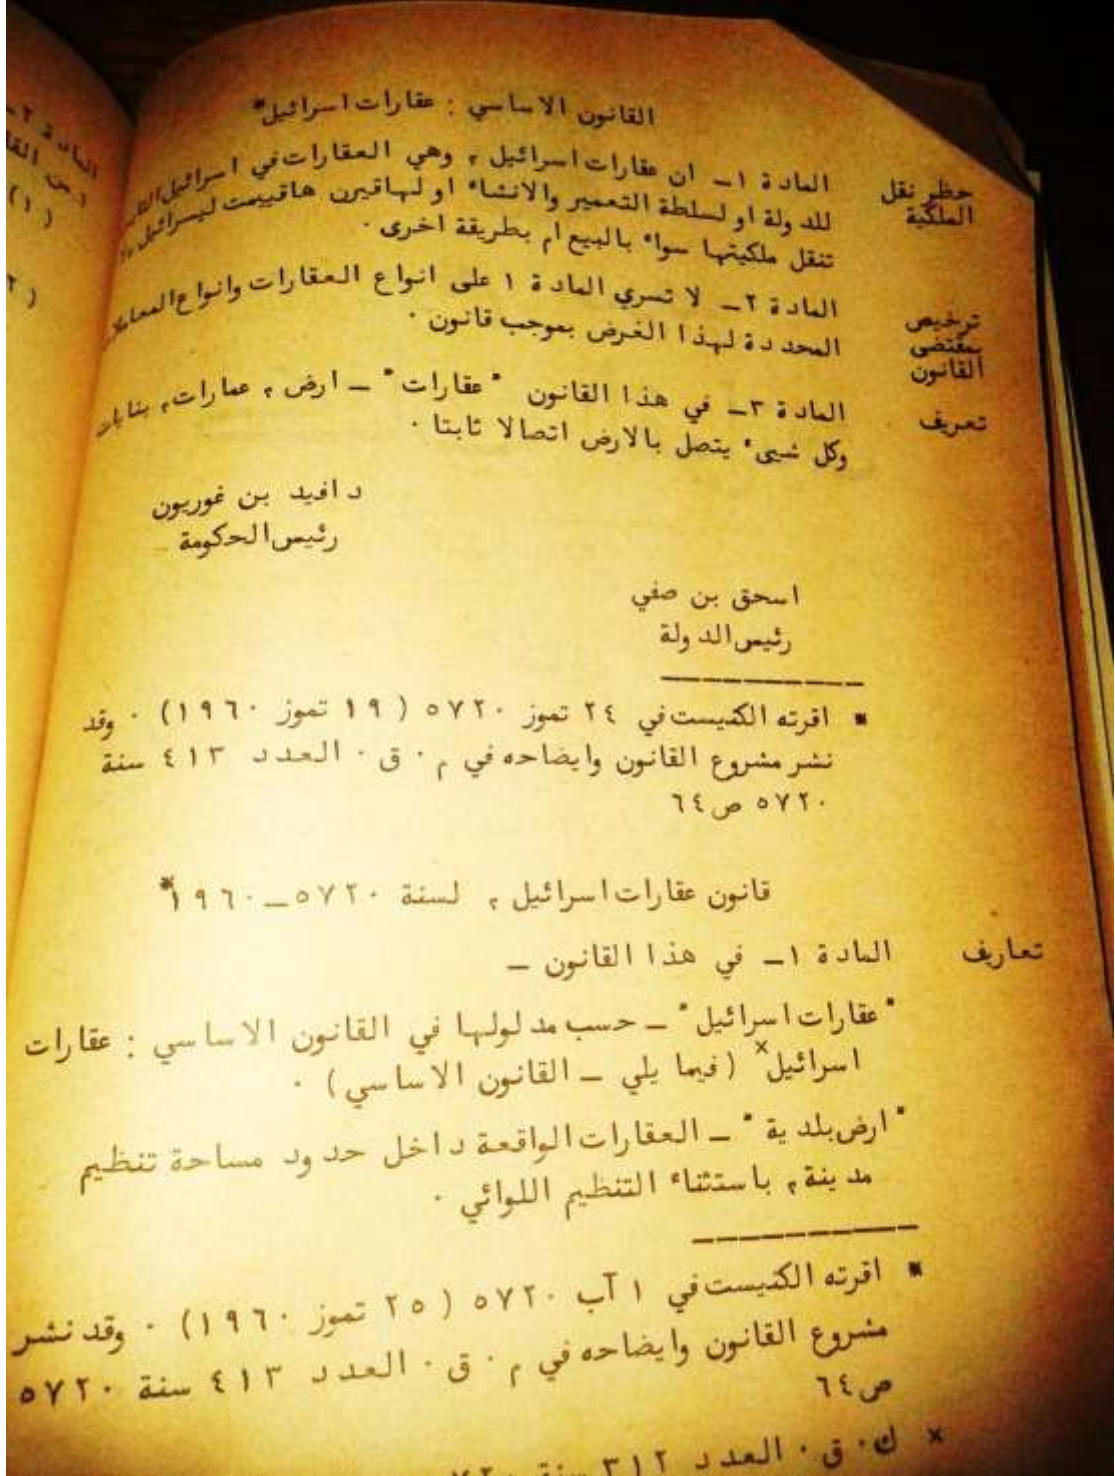 القانون الاساسي : عقارات اسرائيل*
حظر نقل الملكية
المادة ١ـ ان عقارات اسرائيل ، وهي العقارات في اسرائيل
للدولة او لسلطة التعمير والانشاء او لهاقيرن هاقييمت ليسرائيل،
تنقل ملكيتها سواء بالبيع ام بطريقة اخرى ·
ترخيص بمقتضى القانون
المادة ٢ـ لا تسري المادة ١ على انواع العقارات وانواع
المحددة لهذا الغرض بموجب قانون ·
تعريف
المادة ٣ـ في هذا القانون "عقارات" ـ ارض ، عمارات، بنايات
وكل شيىء يتصل بالارض اتصالا ثابتا ·
دافيد بن غوريون
رئيس الحكومة
اسحق بن صفي
رئيس الدولة
* اقرته الكنيست في ٢٤ تموز ٥٧٢٠ (١٩ تموز ١٩٦٠) · وقد
نشر مشروع القانون وايضاحه في م · ق · العدد ٤١٣ سنة
٥٧٢٠ ص ٦٤
قانون عقارات اسرائيل ، لسنة ٥٧٢٠ـ١٩٦٠*
تعاريف
المادة ١ـ في هذا القانون ـ
"عقارات اسرائيل" ـ حسب مدلولها في القانون الاساسي : عقارات
اسرائيل× (فيما يلي ـ القانون الاساسي) ·
"ارض بلدية" ـ العقارات الواقعة داخل حدود مساحة تنظيم
مدينة، باستثناء التنظيم اللوائي ·
* اقرته الكنيست في ١ آب ٥٧٢٠ (٢٥ تموز ١٩٦٠) · وقد نشر
مشروع القانون وايضاحه في م · ق · العدد ٤١٣ سنة ٥٧٢٠
ص ٦٤
× ك· ق · العدد ٣١٢ سنة